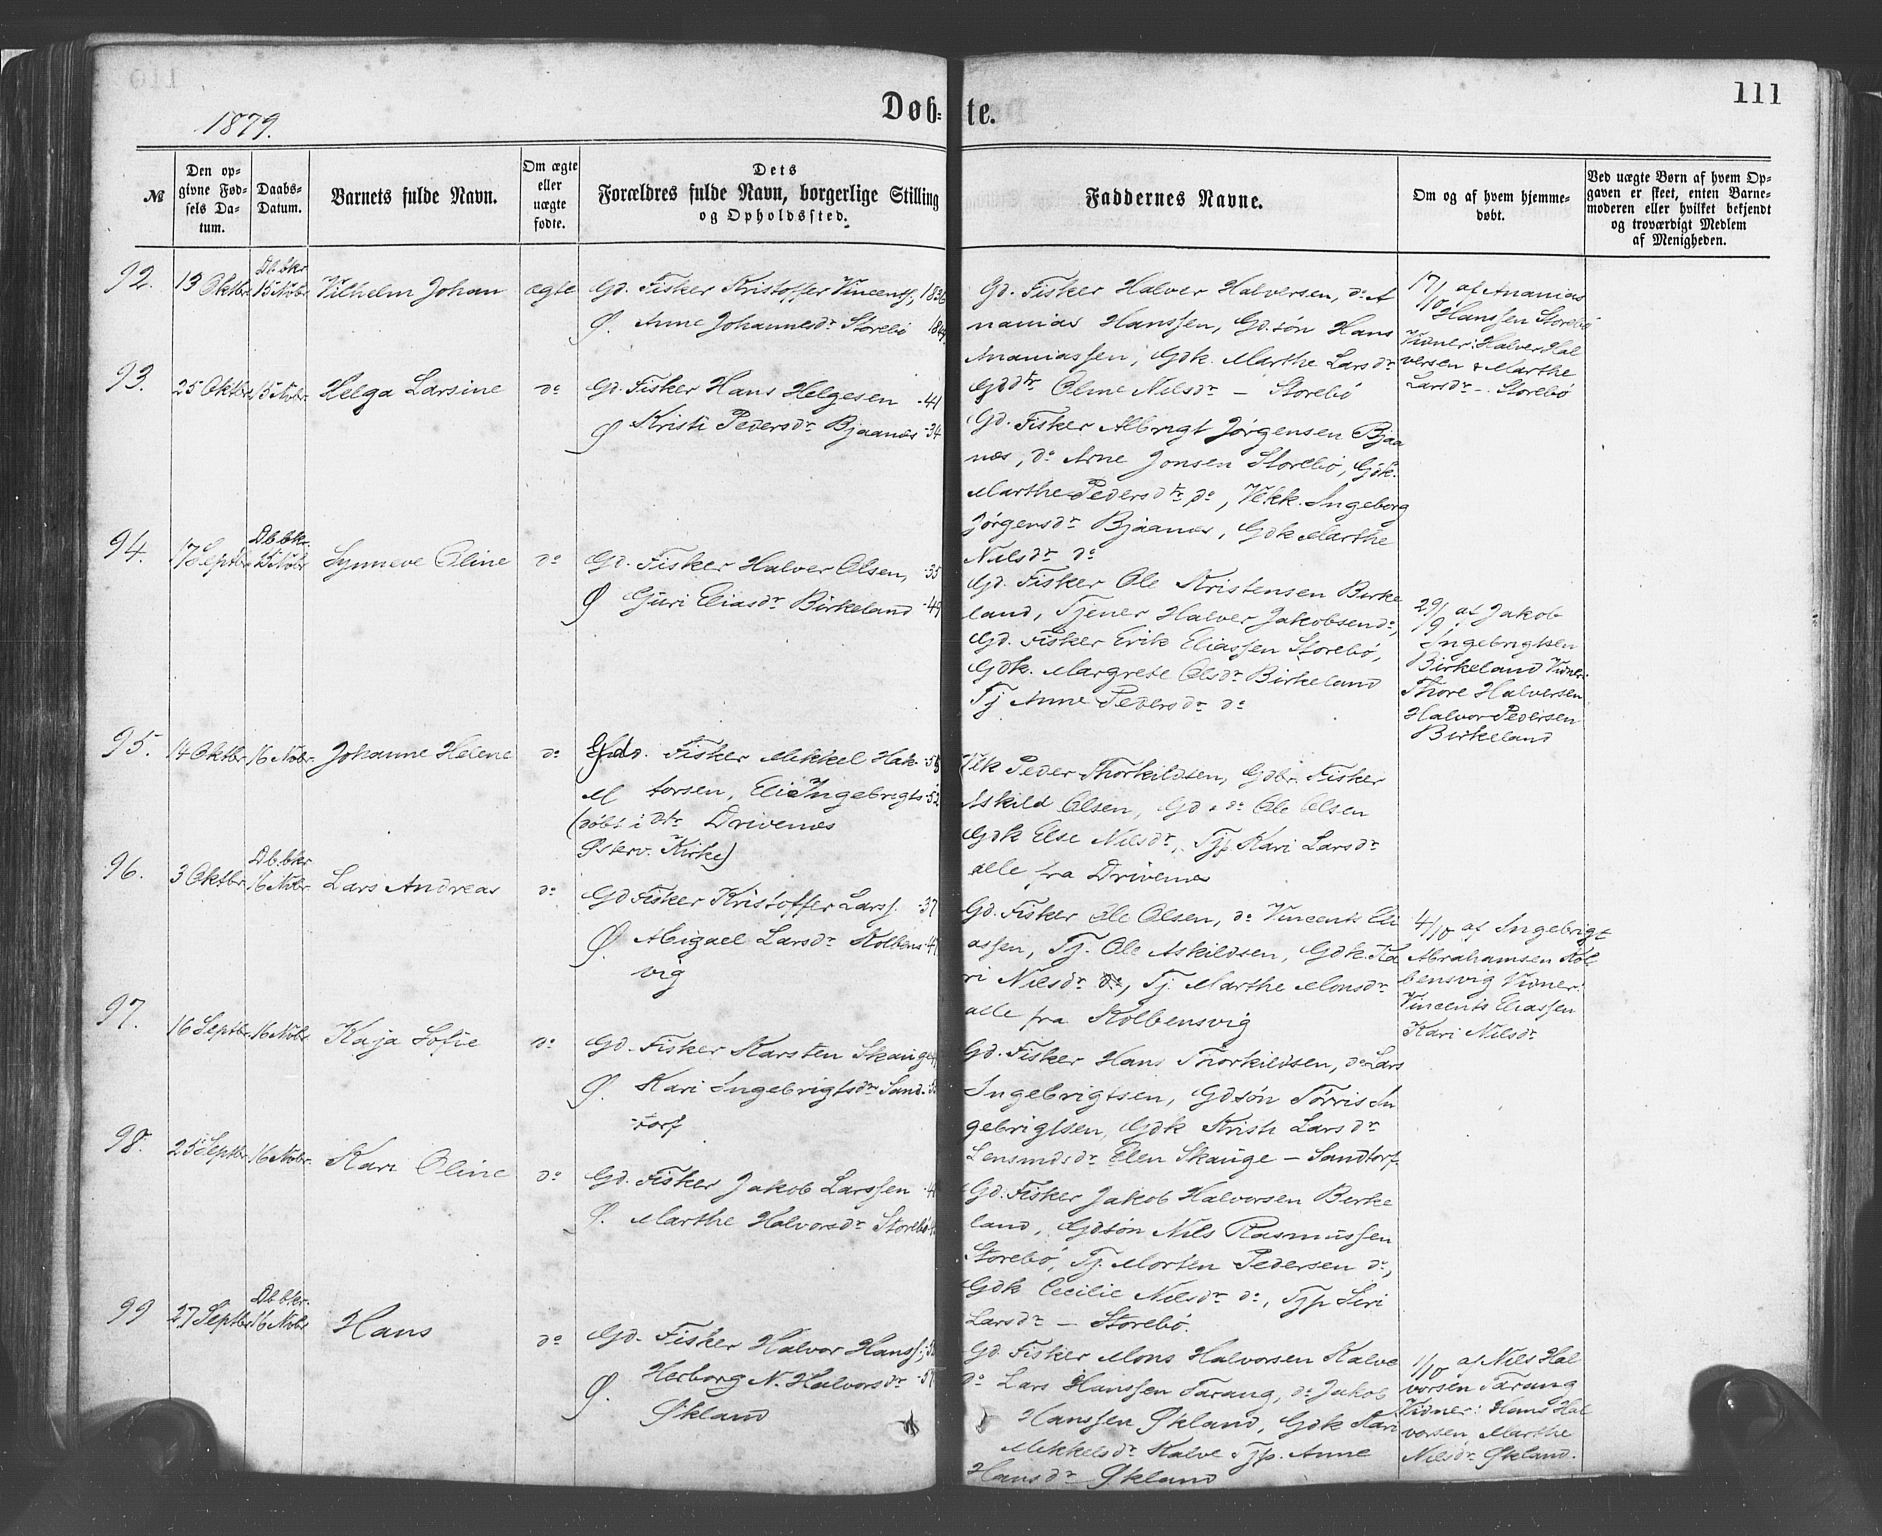 111
Døb-te.
1879.
№
Den op-
givne Fød-
sels Da-
tum.
Daabs-
Datum.
Barnets fulde Navn.
Om ægte
eller
uægte
fødte.
Dets
Forældres fulde Navn, borgerlige Stilling
og Opholdssted.
Faddernes Navne.
Om og af hvem hjemme-
døbt.
Ved uægte Børn af hvem Op-
gaven er skeet, enten Barne-
moderen eller hvilket bekjendt
og troværdigt Medlem
af Menigheden.
92.
13 Oktbr
Db. bkr
15 Nóbr
Vilhelm Johan
ægte
Gd. Fisker Kristoffer Vincents, 1836
Ø. Anne Johannesdr Storebö
Gd. Fisker Halver Halversen, do A
nanias Hanssen, Gdsön Hans
Ananiassen, Gdk. Marthe Larsdr
Gddtr Oline Nilsdr – Storebö
17/10 af Ananias
Hanssen Storebö
Vidner: Halver Hal
versen & Marthe
Larsdr – Storebö
93.
25 Oktbr
15 Nóbr
Helga Larsine
do
Gd. Fisker Hans Helgesen -41
Ø Kristi Pedersdr Bjaanæs -34
Gd. Fisker Albrigt Jörgensen Bjaa
næs, do Arne Jonsen Storebö, Gdk.
Marthe Pedersdtr do, Vekk. Ingeborg
Jörgensdr Bjaanæs, Gdk Marthe
Nilsdr do
94.
17 Septbr
Db. bkr.
15 Nóbr
Synneve Oline
do
Gd. Fisker Halver Olsen, -35
Ø Guri Eliasdr Birkeland -49
Gd. Fisker Ole Kristensen Birke
land, Tjener Halver Jakobsen do,
Gd. Fisker Erik Eliassen Storebö,
Gdk. Margrete Olsdr Birkeland
Tj Anne Pedersdr do
29/9 af Jakob
Ingebrigtsen
Birkeland Vidner:
Thore Halversen
Halvor Pedersen
Birkeland
95.
14 Oktbr
16 Nóbr.
Johanne Helene
do
Fisker Mikkel Hak -55
M torsen, Eli Ingebrigts -52
(döbt i dtr Drivenes
Østerv. Kirke)
Vlk Peder Thorkildsen, Gdbr. Fisker
Askild Olsen, Gd. do Ole Olsen
Gdk Else Nilsdr, Tjp Kari Larsdr
alle fra Drivenes
96.
3 Oktbr
Db. bkr
16 Nóbr
Lars Andreas
do
Gd Fisker Kristoffer Larss. -37
Ø. Abigael Larsdr Kolbens
vig
Gd. Fisker Ole Olsen, do Vincents Eli
assen, Tj. Ole Askildsen, Gdk. Ka
ri Nilsdr do, Tj Marthe Monsdr
alle fra Kolbensvig
4/10 af Ingebrigt
Abrahamsen Kol
bensvig Vidner:
Vincents Eliassen
Kari Nilsdr
97.
16 Septbr
16 Nóbr
Kaja Sofie
do
Gd. Fisker Karsten Skauge
Ø. Kari Ingebrigtsdr Sand
torf
Gd. Fisker Hans Thorkildsen, do Lars
Ingebrigtsen, Gdsön Törris In
gebrigtsen, Gdk Kristi Larsdr
Lensmdsdr Elen Skauge – Sandtorf
98.
25 Septbr
16 Nóbr.
Kari Oline
do
Gd. Fisker Jakob Larssen
Ø. Marthe Halvorsdr Storebö
Gd. Fisker Jakob Halvorsen Birke
land, Gdsön Nils Rasmussen
Storebö, Tj. Morten Pedersen do,
Gdk Cecilie Nilsdr do, Tjp Siri
Larsdr – Storebö.
99
27 Septbr
Db. bkr.
16 Nóbr
Hans
do
Gd. Fisker Halvor Hanss,
Ø. Herborg N. Halvorsdr
Økland
Gd Fisker Mons Halvorsen Kalve
do Lars Hanssen Tarang, do Jakob
Hanssen Økland, Gdk Kari
Mikkelsdr Kalve Tjp. Anne
Hansdr Økland
1/10 af Nils Hal
vorsen Tarang
Vidner: Hans Hal
vorsen Marthe
Nilsdr Økland.